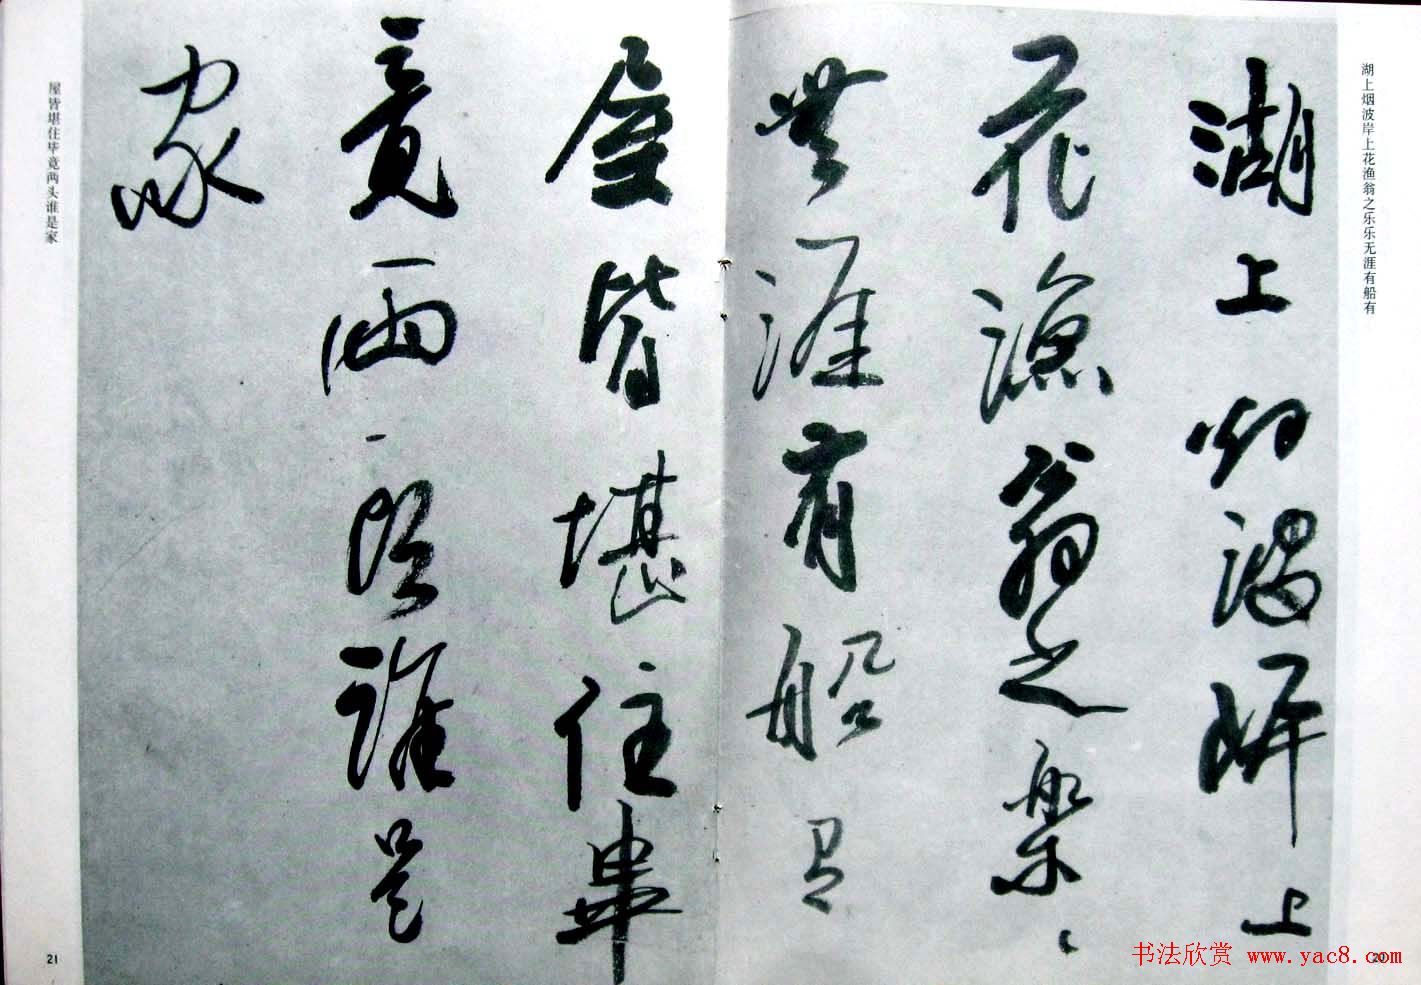 湖上烟波岸上花渔翁之乐乐无涯有船有
湖上烟波岸上
花漁翁之樂〻
無涯有船有
20
屋皆堪住畢
竟兩頭誰是
家
屋皆堪住毕竟两头谁是家
21
书法欣赏 www.yac8.com